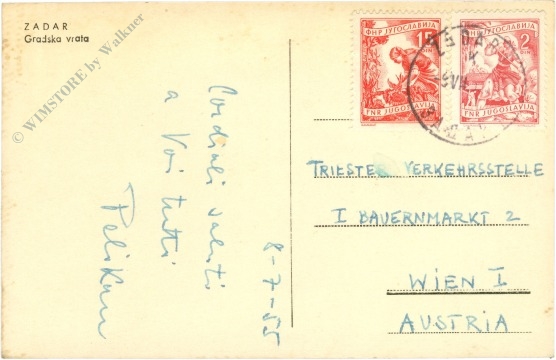 ZADAR
Gradska vrata
© WIMSTORE by Walkner
Cordiali saluti
a Voi tutti
Pelikan
8-7-55
ФНР ЈУГОСЛАВИЈА
15
FNR JUGOSLAVIJA
ФНР ЈУГОСЛАВИЈА
2
FNR JUGOSLAVIJA
ZADAR
TRIESTER VERKEHRSSTELLE
I BAUERNMARKT 2
WIEN I
AUSTRIA